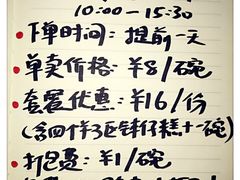 10:00-15:30
下单时间：提前一天
单卖价格：¥8/碗
套餐优惠：¥16/份
(含四个钵仔糕+一碗)
打包费：¥1/碗